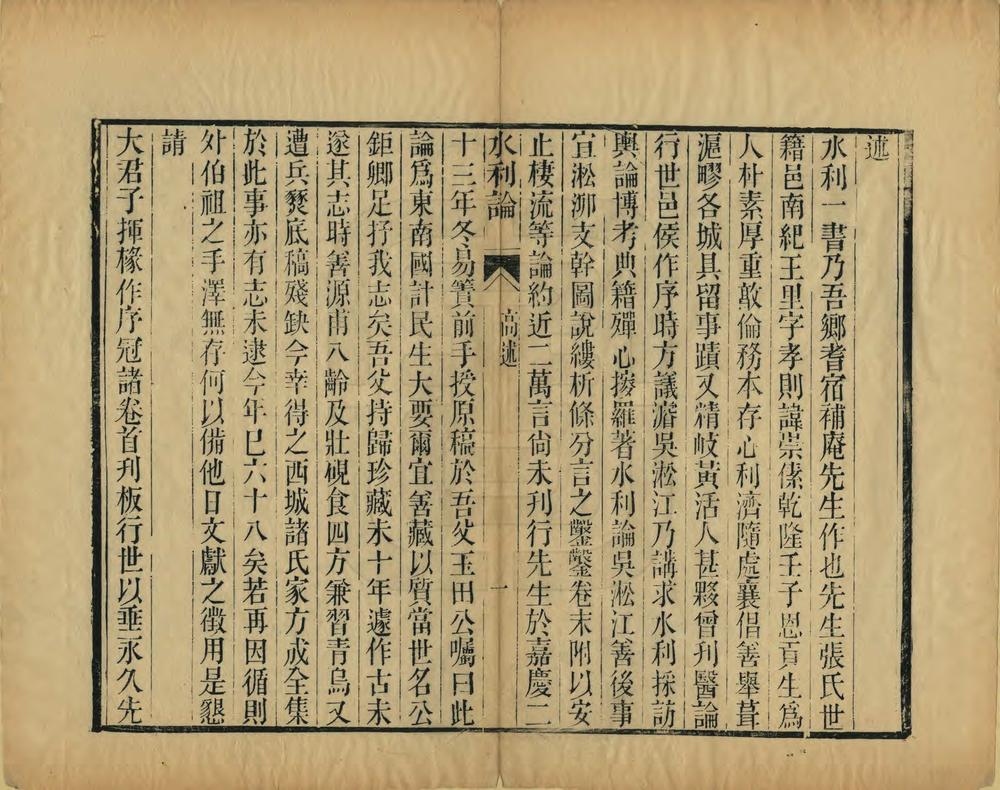 述
水利一書乃吾鄉耆宿補庵先生作也先生張氏世
籍邑南紀王里字孝則諱崇傃乾隆壬子恩貢生爲
人朴素厚重敦倫務本存心利濟隨處襄倡善舉葺
滬疁各城具留事蹟又精岐黃活人甚夥曾刋醫論
行世邑侯作序時方議濬吳淞江乃講求水利採訪
輿論博考典籍殫心搜羅著水利論吳淞江善後事
宜淞泖支幹圖說縷析條分言之鑿鑿卷末附以安
止棲流等論約近二萬言尙未刋行先生於嘉慶二
水利論
高述
一
十三年冬易簀前手授原稿於吾父玉田公囑曰此
論爲東南國計民生大要爾宜善藏以質當世名公
鉅卿足抒我志矣吾父持歸珍藏未十年遽作古未
遂其志時善源甫八齡及壯硯食四方兼習青烏又
遭兵燹底稿殘缺今幸得之西城諸氏家方成全集
於此事亦有志未逮今年巳六十八矣若再因循則
外伯祖之手澤無存何以備他日文獻之徵用是懇
請
大君子揮椽作序冠諸卷首刋板行世以垂永久先